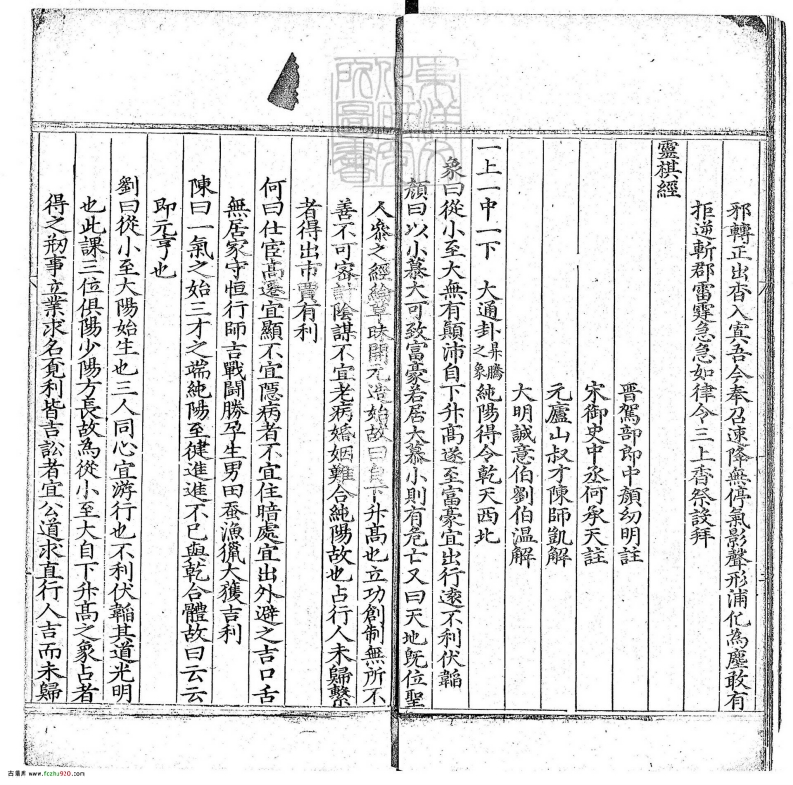 邪轉正出杳入㝠吾今奉召速降無停氣影聲形浦化為塵敢有
拒逆斬郡雷霆急急如律令三上香祭設拜
晉駕部郎中顔幼明註
宋御史中丞何承天註
元廬山叔才陳師凱解
大明誠意伯劉伯温解
靈棋經
一上一中一下 大通卦 昇騰之象 純陽得令乾天西北
象曰從小至大無有顛沛自下升髙遂至富豪宜出行逺不利伏韜
顔曰以小慕大可致富豪若居大慕小則有危亡又曰天地既位聖
人參之經綸草昧開元造始故曰自下升髙也立功創制無所不
善不可密謝陰謀不宜老病婚姻難合純陽故也占行人未歸繫
者得出市賈有利
何曰仕宦髙遷宜顯不宜隱病者不宜住暗處宜出外避之吉口舌
無居家守恒行師吉戰鬪勝孕生男田蚕漁獵大獲吉利
陳曰一氣之始三才之端純陽至健進進不已與乾合體故曰云云
即元亨也
劉曰從小至大陽始生也三人同心宜游行也不利伏韜其道光明
也此課三位俱陽少陽方長故為從小至大自下升髙之象占者
得之刱事立業求名覓利皆吉訟者宜公道求直行人吉而未歸
古籍库 www.fczhu920.com